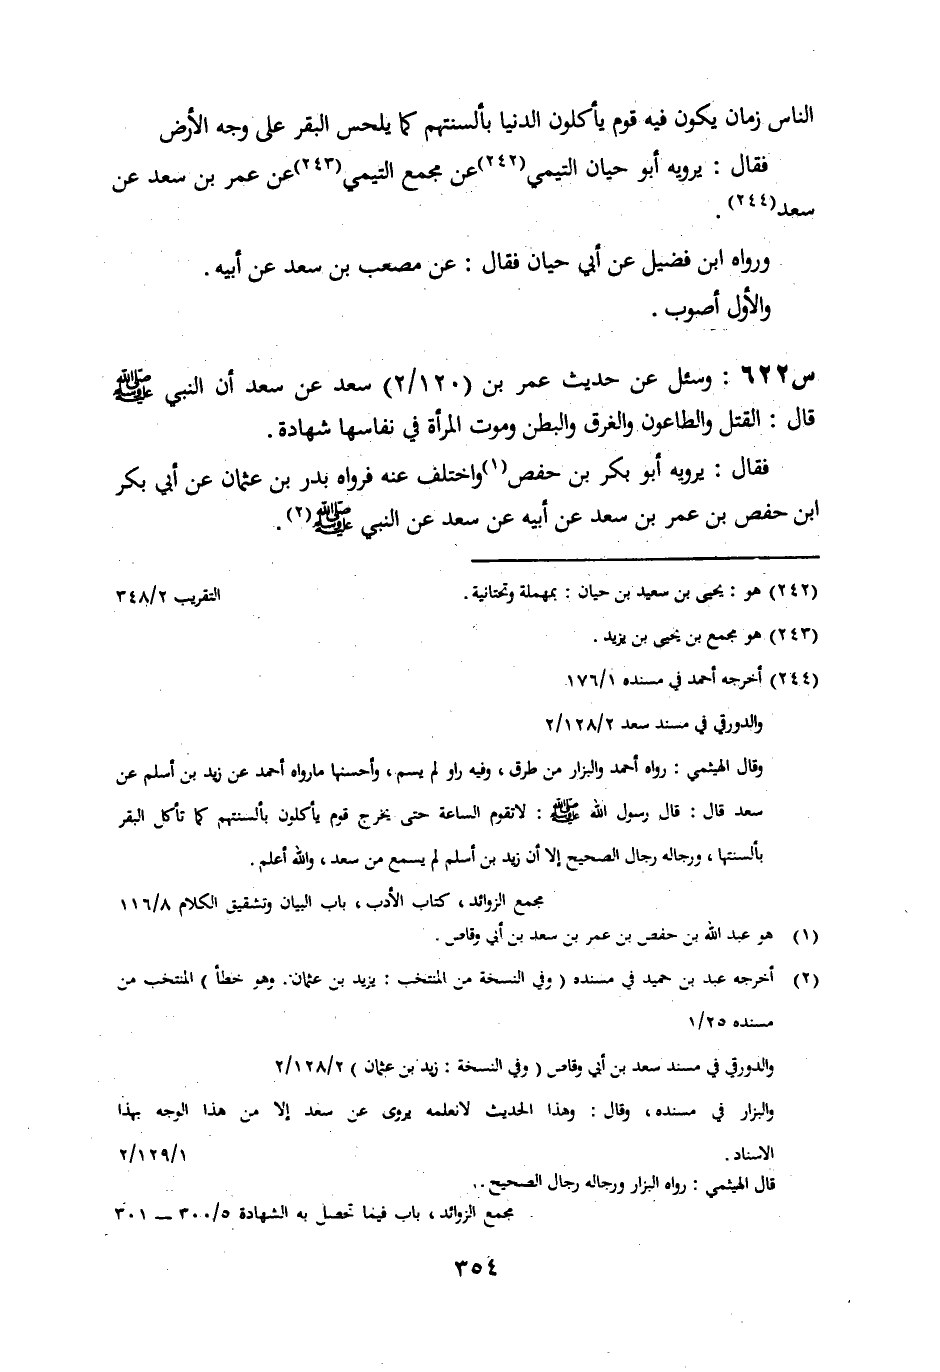 الناس زمان يكون فيه قوم يأكلون الدنيا بألسنتهم كما يلحس البقر على وجه الأرض
فقال : يرويه أبو حيان التيمي(٢٤٢)عن مجمع التيمي(٢٤٣)عن عمر بن سعد عن
سعد(٢٤٤) .
ورواه ابن فضيل عن أبي حيان فقال : عن مصعب بن سعد عن أبيه .
والأول أصوب .
س٦٢٢ : وسئل عن حديث عمر بن (٢/١٢٠) سعد عن سعد أن النبي ﷺ
قال : القتل والطاعون والغرق والبطن وموت المرأة في نفاسها شهادة .
فقال : يرويه أبو بكر بن حفص(١)واختلف عنه فرواه بدر بن عثمان عن أبي بكر
ابن حفص بن عمر بن سعد عن أبيه عن سعد عن النبي ﷺ(٢) .
(٢٤٢) هو : يحيى بن سعيد بن حيان : بمهملة وتحتانية . التقريب ٣٤٨/٢
(٢٤٣) هو مجمع بن يحيى بن يزيد .
(٢٤٤) أخرجه أحمد في مسنده ١٧٦/١
والدورقي في مسند سعد ٢/١٢٨/٢
وقال الهيثمي : رواه أحمد والبزار من طرق ، وفيه راو لم يسم ، وأحسنها مارواه أحمد عن زيد بن أسلم عن
سعد قال : قال رسول الله ﷺ : لاتقوم الساعة حتى يخرج قوم يأكلون بألسنتهم كما تأكل البقر
بألسنتها ، ورجاله رجال الصحيح إلا أن زيد بن أسلم لم يسمع من سعد ، والله أعلم .
مجمع الزوائد ، كتاب الأدب ، باب البيان وتشقيق الكلام ١١٦/٨
(١) هو عبد الله بن حفص بن عمر بن سعد بن أبي وقاص .
(٢) أخرجه عبد بن حميد في مسنده ( وفي النسخة من المنتخب : يزيد بن عثمان. وهو خطأ ) المنتخب من
مسنده ١/٢٥
والدورقي في مسند سعد بن أبي وقاص ( وفي النسخة : زيد بن عثمان ) ٢/١٢٨/٢
والبزار في مسنده، وقال : وهذا الحديث لانعلمه يروى عن سعد إلا من هذا الوجه بهذا
الاسناد . ٢/١٢٩/١
قال الهيثمي : رواه البزار ورجاله رجال الصحيح ..
مجمع الزوائد ، باب فيما تحصل به الشهادة ٣٠٠/٥ — ٣٠١
٣٥٤